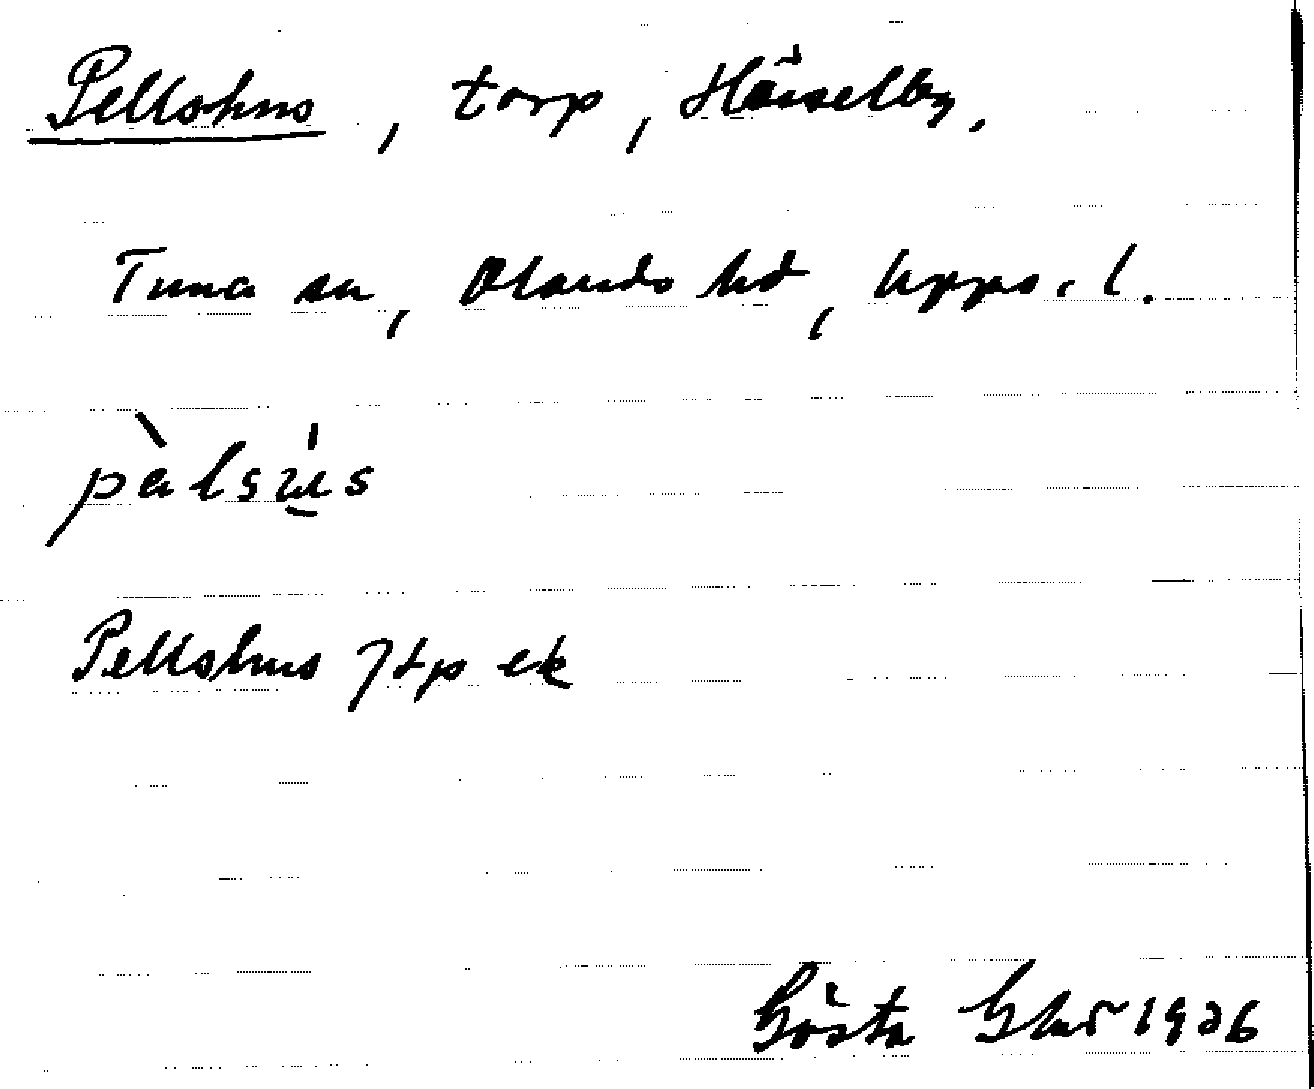 Pellshus, torp, Hässelby,
Tuna sn, Olands hd, Upps. l.
pàlsús
Pellshus Jtp ek
Gösta 1926